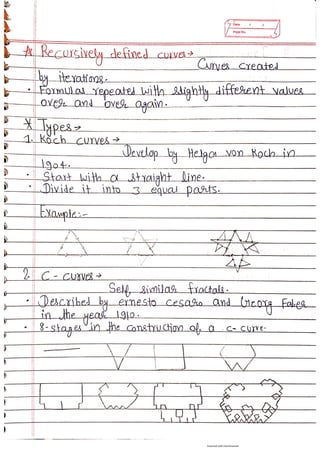 Date
Page No.
Recursively defined curves→
Curves created
by iterations.
• Formulas repeated with slightly different values
over and over again.
* Types→
1. Koch curves→
Develop by Helga von Koch in
1904.
• Start with a straight line.
• Divide it into 3 equal parts.
Example:-
2. C-curves→
Self similar fractals.
• Described by ernesto cesaro and Georg Faber
in the year 1910.
• 8-stages in the construction of a c-curve.
Scanned with CamScanner